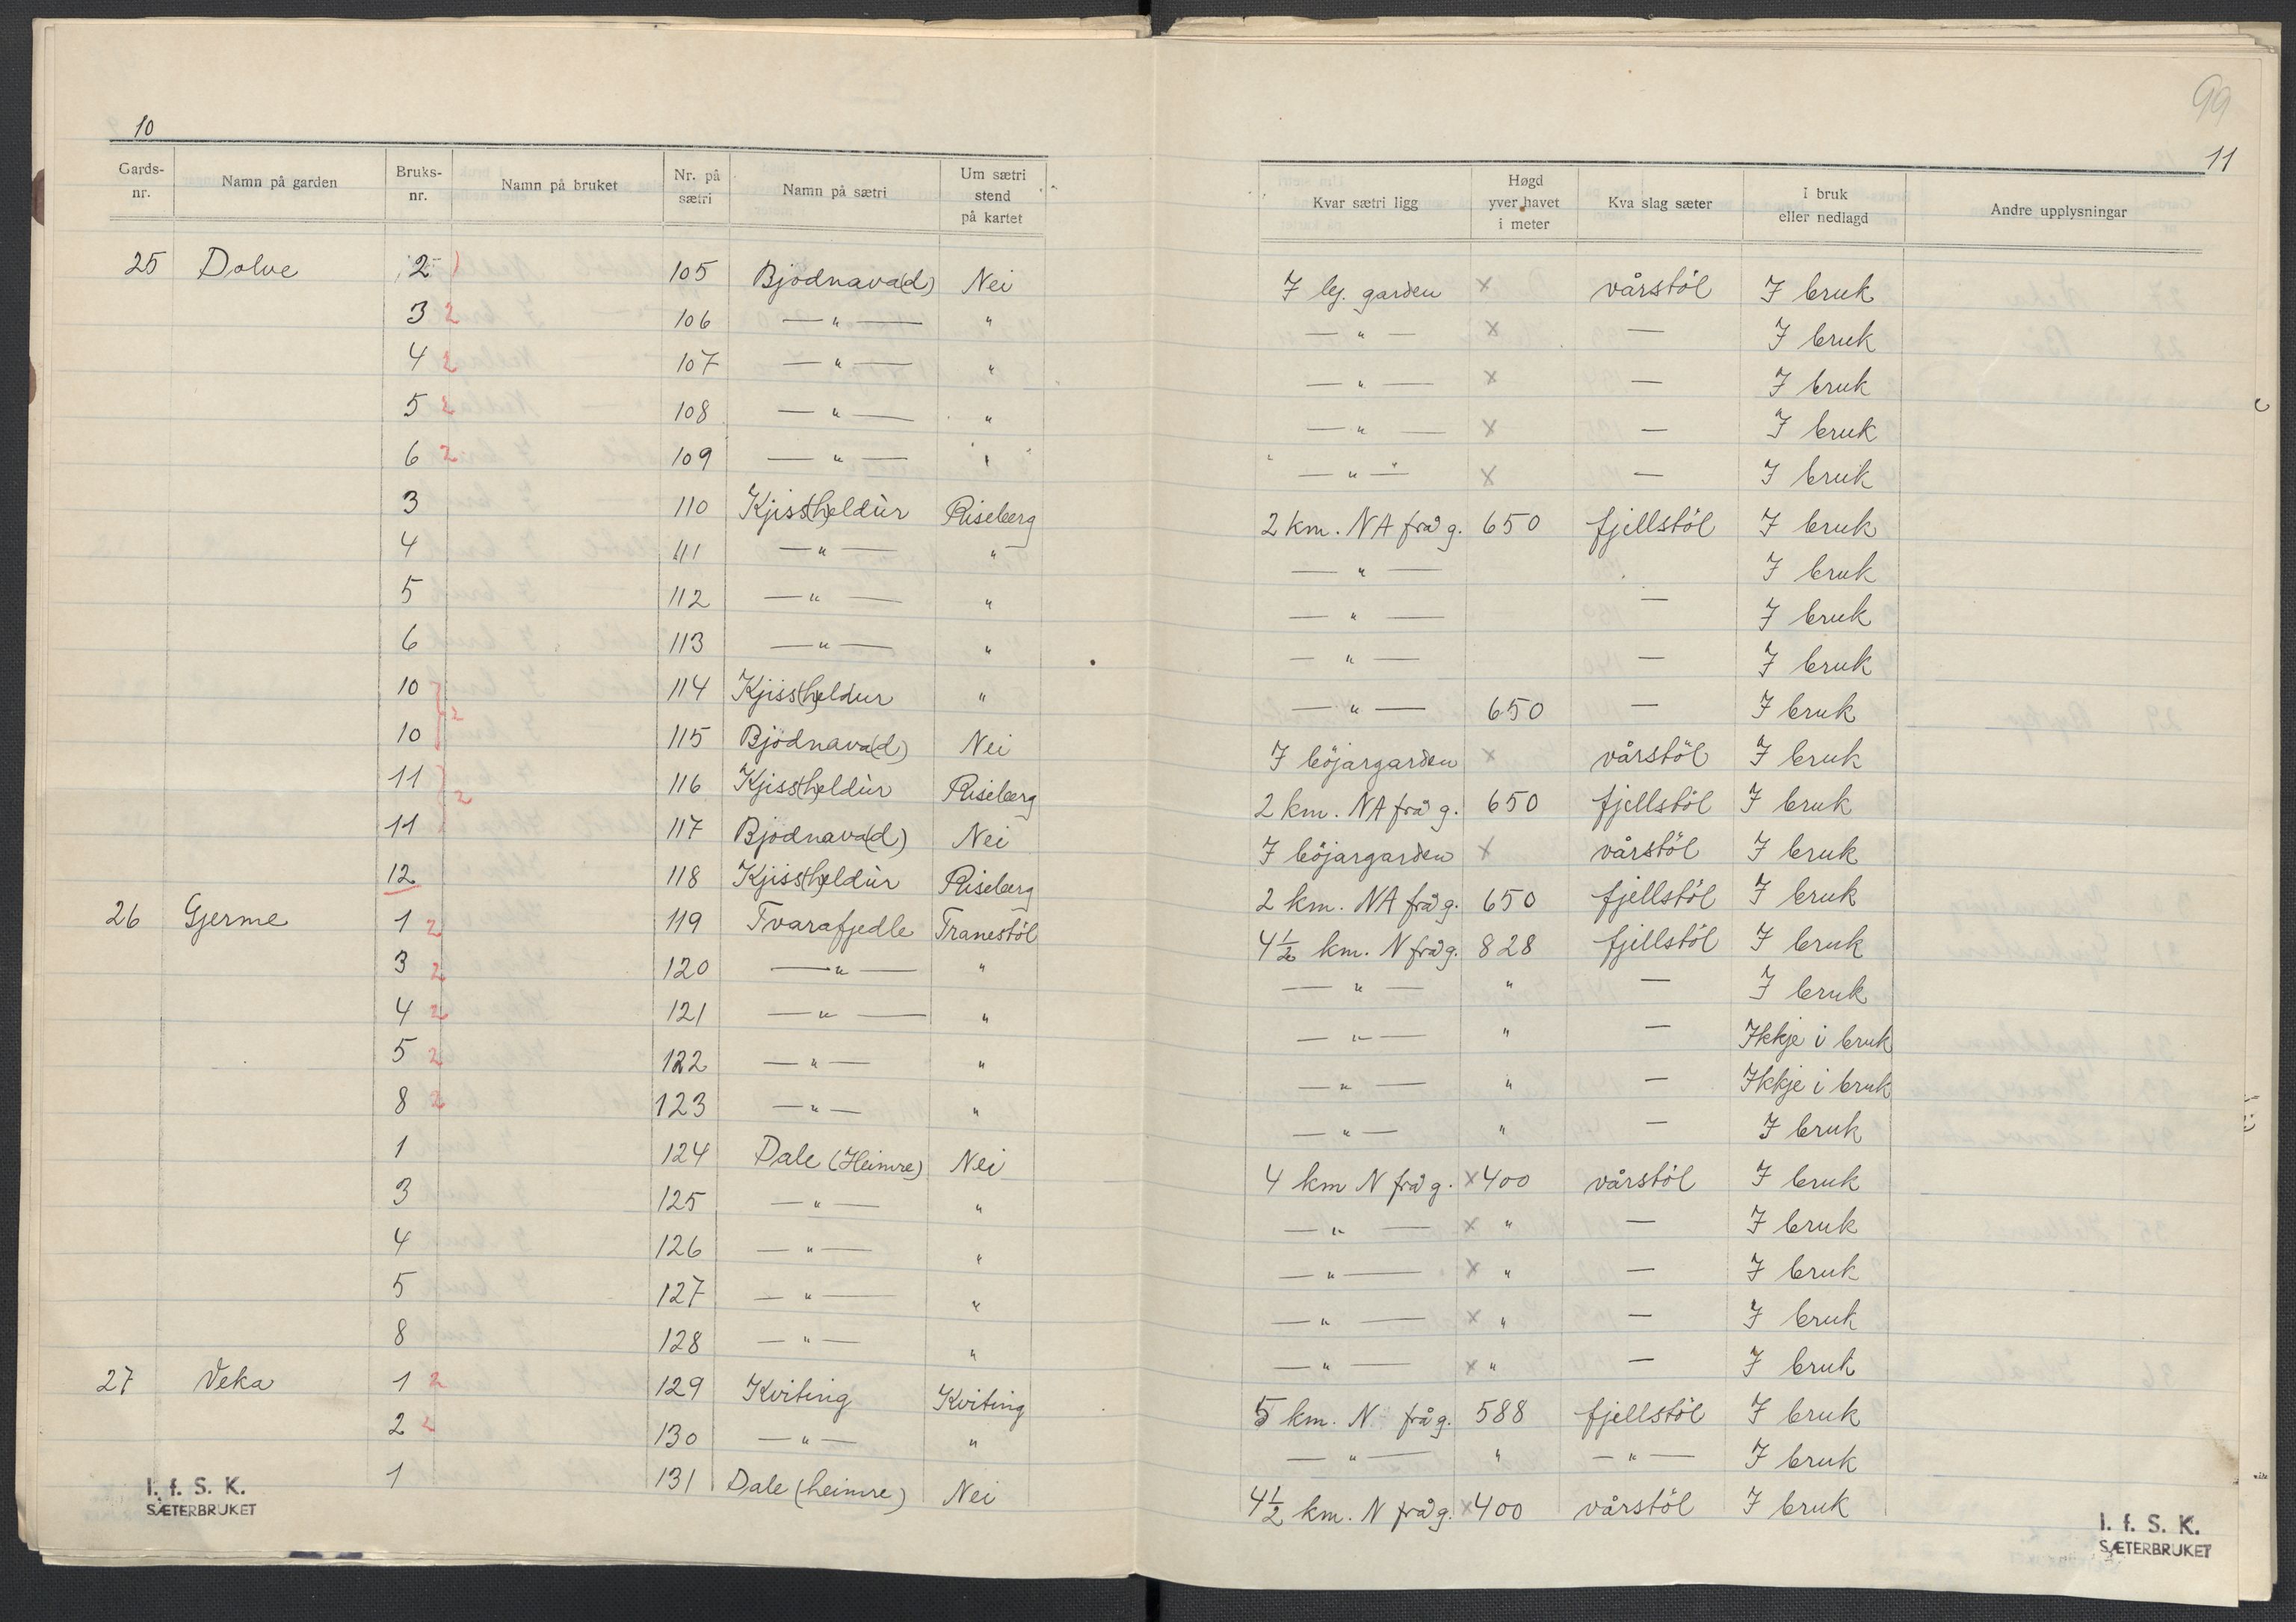 10
Gards-nr. Namn på garden Bruks-nr. Namn på bruket Nr. på sætri Namn på sætri Um sætri stend på kartet
25 Dolve 2 105 Bjödnava(d) Nei
3 2 106 —"— "
4 2 107 —"— "
5 2 108 —"— "
6 2 109 —"— "
3 110 Kjiss(h)eldur Riseberg
4 111 —"— "
5 112 —"— "
6 113 —"— "
10 114 Kjiss(h)eldur "
2
10 115 Bjödnava(d) Nei
11 116 Kjiss(h)eldur Riseberg
2
11 117 Bjödnava(d) Nei
12 118 Kjiss(h)eldur Riseberg
26 Gjerme 1 2 119 Tvarafjedle Tranestöl
3 2 120 —"— "
4 2 121 —"— "
5 2 122 —"— "
8 2 123 —"— "
1 124 Dale (Heimre) Nei
3 125 —"— "
4 126 —"— "
5 127 —"— "
8 128 —"— "
27 Veka 1 2 129 Kviting Kviting
2 2 130 —"— "
1 131 Dale (heimre) Nei
I. f. S. K.
SÆTERBRUKET
99
11
Kvar sætri ligg Høgd yver havet i meter Kva slag sæter I bruk eller nedlagd Andre upplysningar
I bj. garden x vårstöl I bruk
—"— x — I bruk
—"— x — I bruk
—"— x — I bruk
—"— x — I bruk
2 km. NA frå g. 650 fjellstöl I bruk
—"— I bruk
—"— — I bruk
—"— — I bruk
—"— 650 — I bruk
I böjargarden x vårstöl I bruk
2 km. NA frå g. 650 fjellstöl I bruk
I böjargarden x vårstöl I bruk
2 km. NA frå g. 650 fjellstöl I bruk
4½ km. N frå g. 828 fjellstöl I bruk
—"— " — I bruk
—"— " — Ikkje i bruk
—"— " — Ikkje i bruk
—"— " — I bruk
4 km N frå g. x400 vårstöl I bruk
—"— x " — I bruk
—"— x " — I bruk
—"— x " — I bruk
—"— x " — I bruk
5 km. N frå g. 588 fjellstöl I bruk
—"— " —"— I bruk
4½ km. N frå g. x400 vårstöl I bruk
I. f. S. K.
SÆTERBRUKET